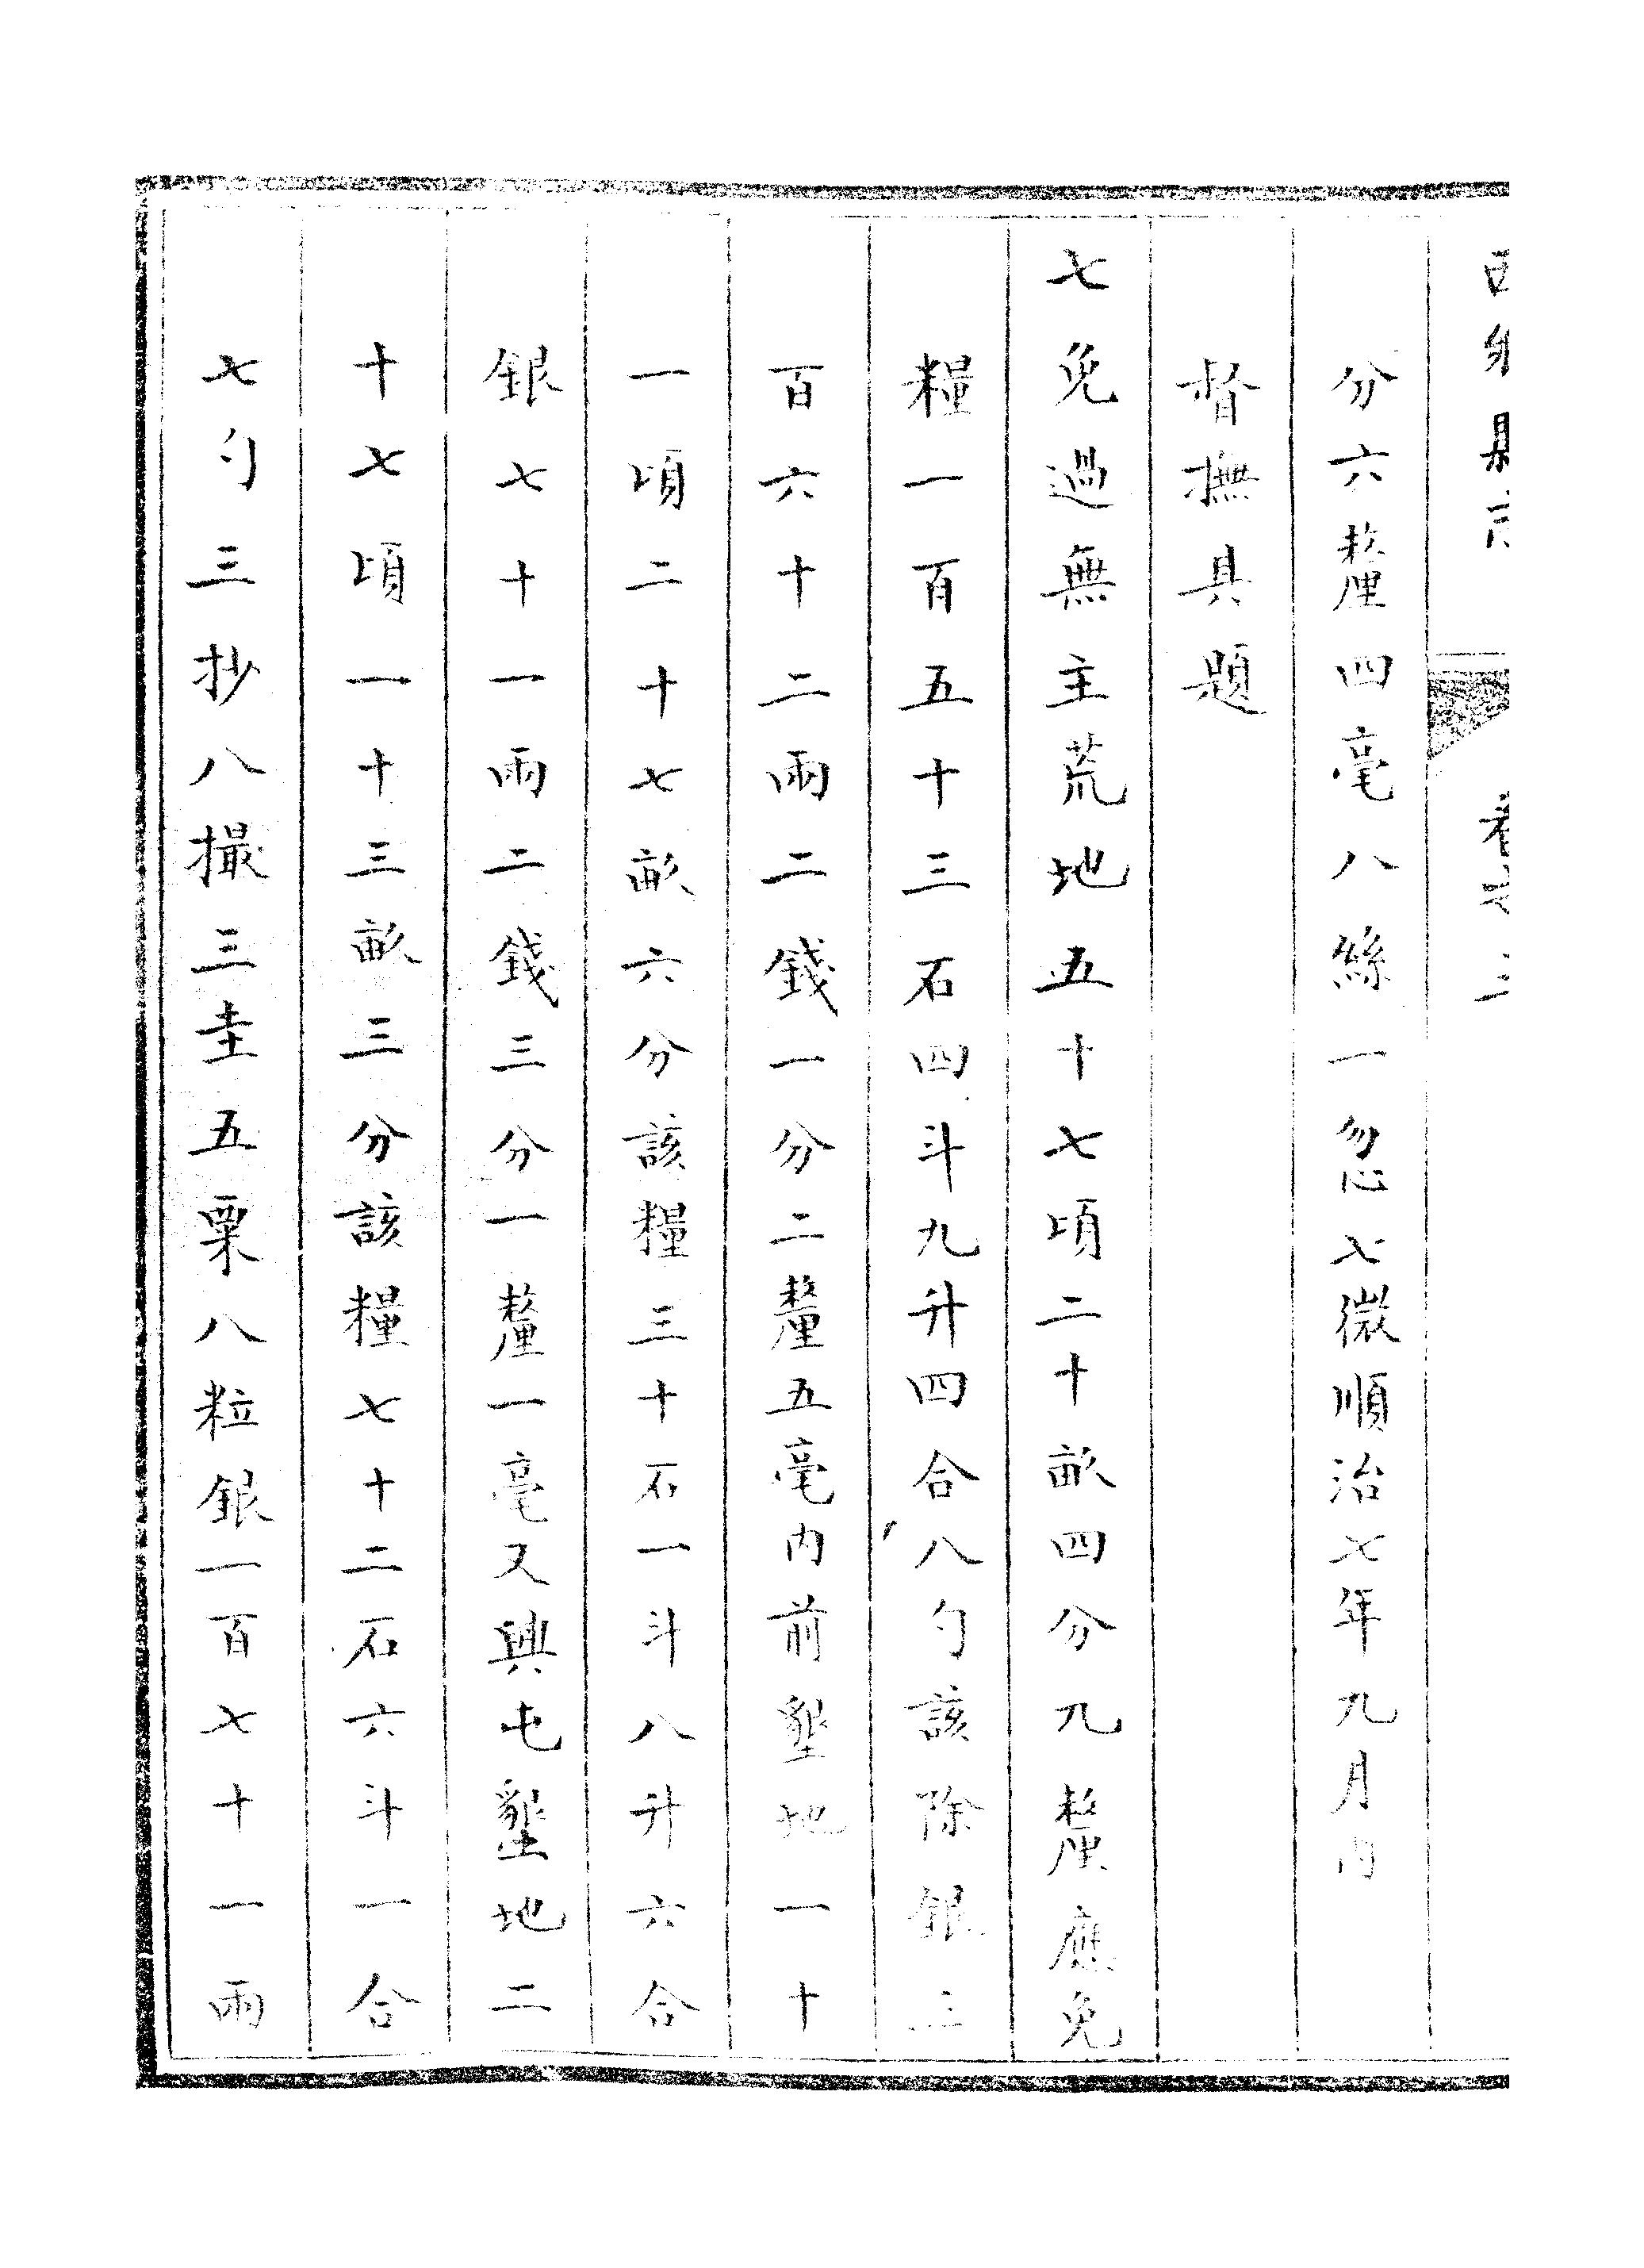 分六釐四毫八絲一忽七微順治七年九月內
督撫具題
七免過無主荒地五十七頃二十畝四分九釐應免
糧一百五十三石四斗九升四合八勺該除銀三
百六十二兩二錢一分二釐五毫內前墾地一十
一頃二十七畝六分該糧三十石一斗八升六合
銀七十一兩二錢三分一釐一毫又興屯墾地二
十七頃一十三畝三分該糧七十二石六斗一合
七勺三抄八撮三圭五粟八粒銀一百七十一兩